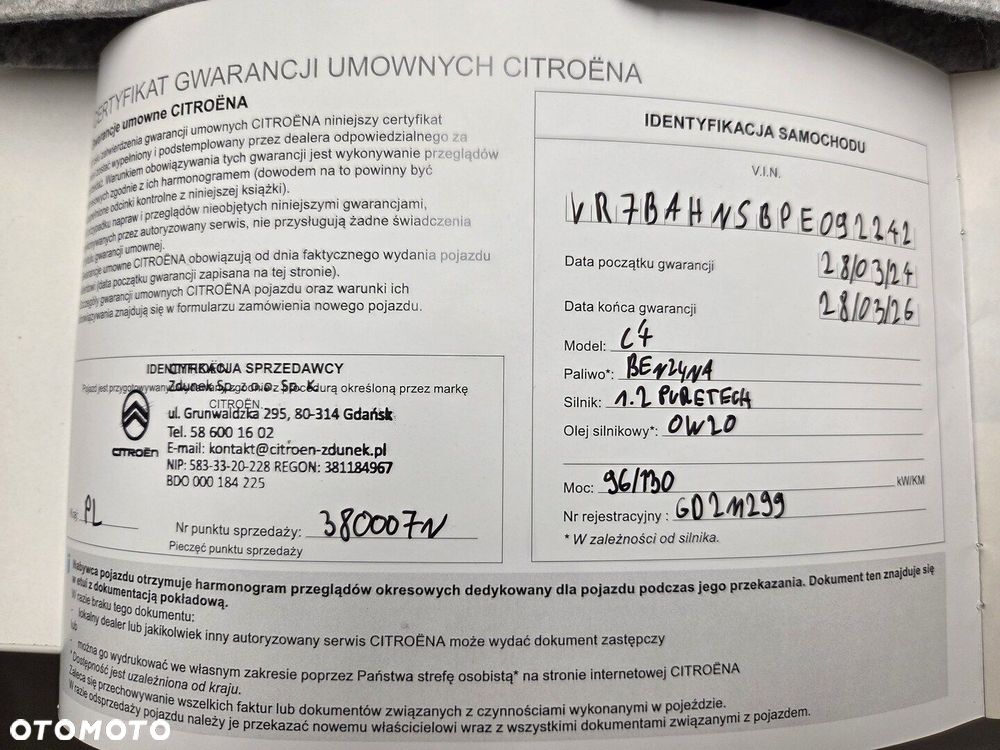 CERTYFIKAT GWARANCJI UMOWNYCH CITROËNA
umowne CITROËNA
zatwierdzenia gwarancji umownych CITROËNA niniejszy certyfikat
wypełniony i podstemplowany przez dealera odpowiedzialnego za
Warunkiem obowiązywania tych gwarancji jest wykonywanie przeglądów
zgodnie z ich harmonogramem (dowodem na to powinny być
odcinki kontrolne z niniejszej książki).
napraw i przeglądów nieobjętych niniejszymi gwarancjami,
przez autoryzowany serwis, nie przysługują żadne świadczenia
gwarancji umownej.
umowne CITROËNA obowiązują od dnia faktycznego wydania pojazdu
(data początku gwarancji zapisana na tej stronie).
gwarancji umownych CITROËNA pojazdu oraz warunki ich
znajdują się w formularzu zamówienia nowego pojazdu.
IDENTYFIKACJA SPRZEDAWCY
Zdunek Sp. z o.o. Sp. K.
Pojazd jest przygotowywany zgodnie z procedurą określoną przez markę
CITROËN
ul. Grunwaldzka 295, 80-314 Gdańsk
Tel. 58 600 16 02
E-mail: kontakt@citroen-zdunek.pl
CITROËN
NIP: 583-33-20-228 REGON: 381184967
BDO 000 184 225
PL
Nr punktu sprzedaży: 380007N
Pieczęć punktu sprzedaży
IDENTYFIKACJA SAMOCHODU
V.I.N.
VR7BAHNSBPE092242
Data początku gwarancji 28/03/24
Data końca gwarancji 28/03/26
Model: C4
Paliwo*: BENZYNA
Silnik: 1.2 PURETECH
Olej silnikowy*: 0W20
Moc: 96/130 kW/KM
Nr rejestracyjny : GD2N299
* W zależności od silnika.
Nabywca pojazdu otrzymuje harmonogram przeglądów okresowych dedykowany dla pojazdu podczas jego przekazania. Dokument ten znajduje się
w etui z dokumentacją pokładową.
W razie braku tego dokumentu:
- lokalny dealer lub jakikolwiek inny autoryzowany serwis CITROËNA może wydać dokument zastępczy
lub
- można go wydrukować we własnym zakresie poprzez Państwa strefę osobistą* na stronie internetowej CITROËNA
* Dostępność jest uzależniona od kraju.
Zaleca się przechowywanie wszelkich faktur lub dokumentów związanych z czynnościami wykonanymi w pojeździe.
W razie odsprzedaży pojazdu należy je przekazać nowemu właścicielowi wraz z wszystkimi dokumentami związanymi z pojazdem.
OTOMOTO